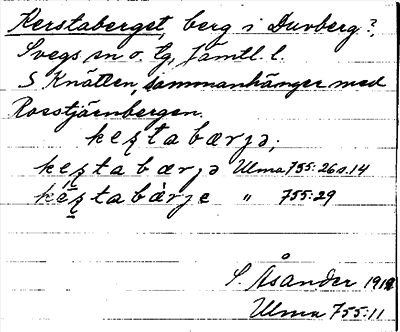 Kerstaberget, berg i Duvberg?,
Svegs sn o. tg, Jämtl. l.
S Knätten, sammanhänger med
Rosstjärnbergen.
keʂtabærjə,
keʂtabærjə Ulma 755:26 s. 14
kéʂtabàrje " 755:29
S Åsander
Ulma 755:11